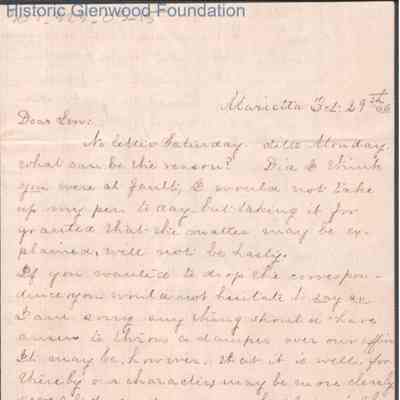 Historic Glenwood Foundation
Marietta Feb. 29th
Dear Lon:
No letter Saturday ditto Monday.
What can be the reason? Did I think
you were at fault, I would not take
up my pen to day but taking it for
granted that the matter may be ex-
plained, will not be hasty.
If you wanted to drop the correspon-
dence you would not hesitate to say so
I am sorry any thing should have
arisen to throw a damper over our
It may be, however, that it is well, for
thereby our characters may be more clearly